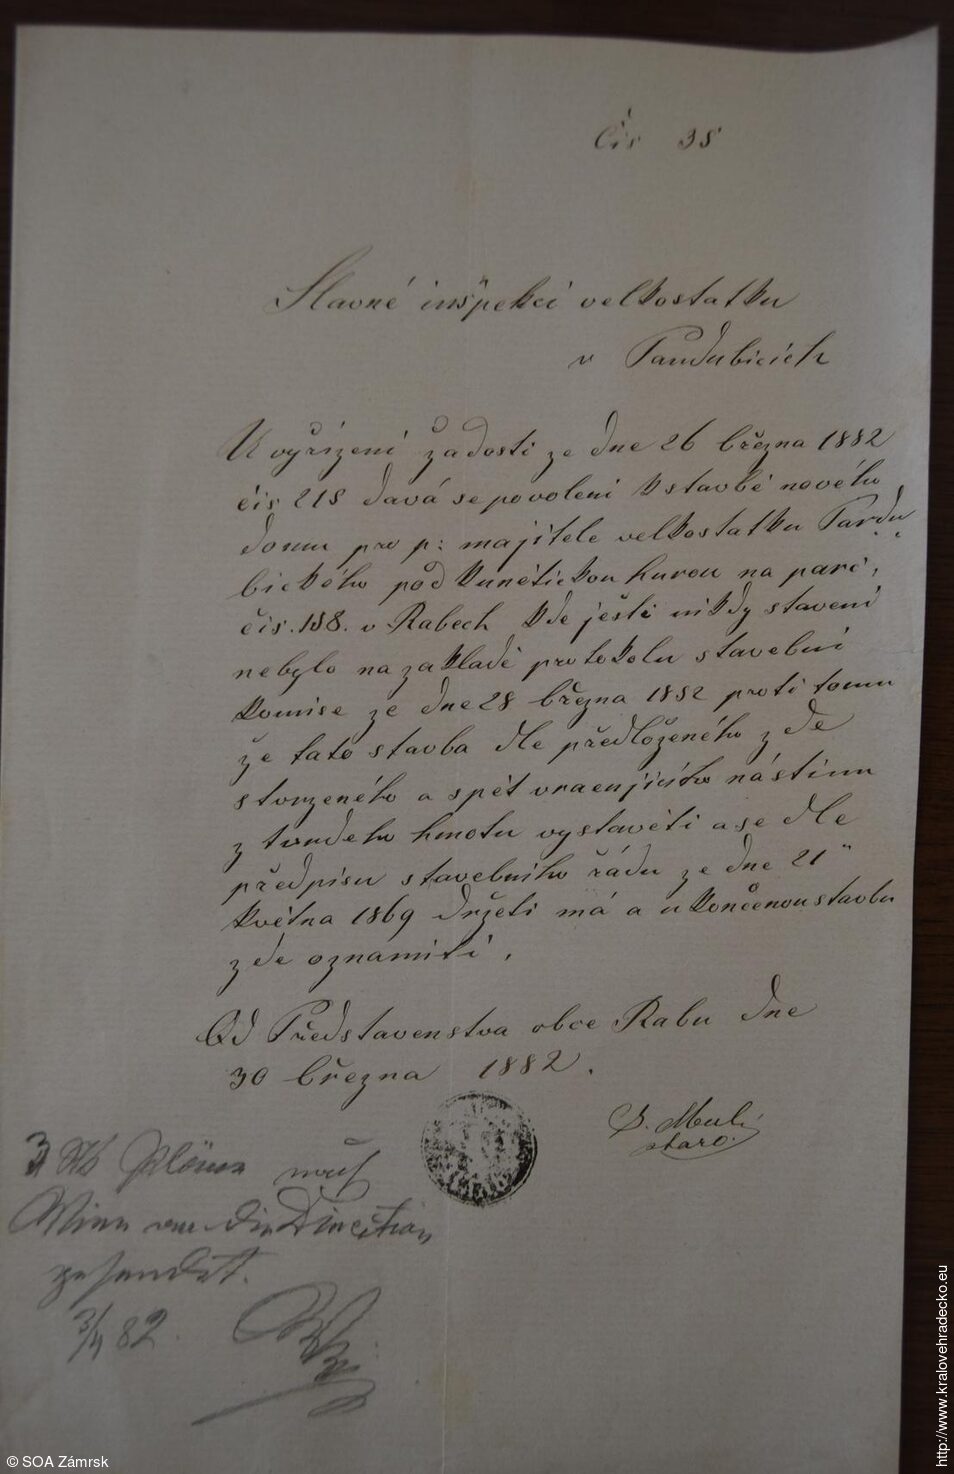 Čís 35
Slavné inšpekcí velkostatku
v Pardubicích
U vyřízení žadosti ze dne 26 března 1882
čís 218 davá se povolení k stavbě nového
domu pro p: majitele velkostatku Pardu
bického pod kunětickou hurou na parc,
čís. 188. v Rabech kde ješti nikdy stavení
nebylo na zakladě protokolu stavební
komise ze dne 28 března 1882 proti tomu
že tato stavba dle předloženého zde
stvrzeného a spět vracujícího nástinu
z tvrdeho hmotu vystavěti a se dle
předpisu stavebního řádu ze dne 21
května 1869 držeti má a ukončenou stavbu
zde oznamiti.
Od Představenstva obce Rabu dne
30 března 1882.
staro.
3 Stk Pläne nach
Wien an die Direction
gesendet.
3/4 82.
© SOA Zámrsk
http://www.kralovehradecko.eu